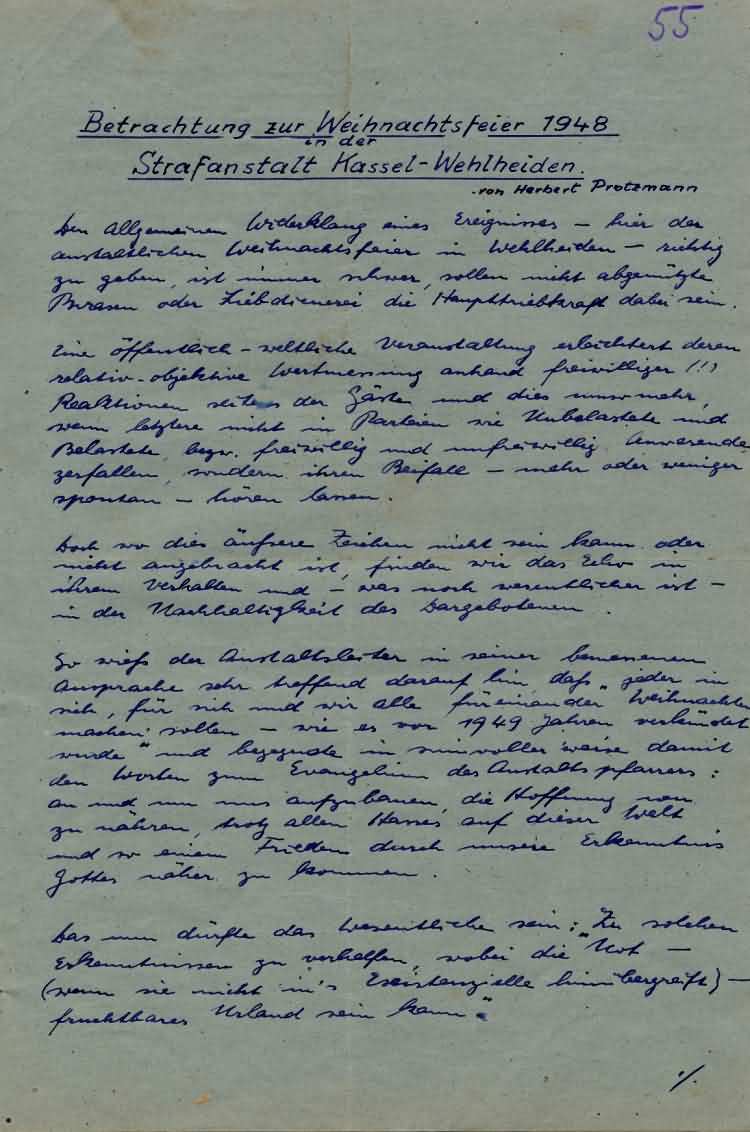 55
Betrachtung zur Weihnachtsfeier 1948
in der
Strafanstalt Kassel-Wehlheiden.
von Herbert Protzmann
Den Allgemeinen Widerklang eines Ereignisses – hier der
anstaltlichen Weihnachtsfeier in Wehlheiden – richtig
zu geben, ist immer schwer, sollen nicht abgenützte
Phrasen oder Liebdienerei die Haupttriebkraft dabei sein.
Eine öffentlich-weltliche Veranstaltung erleichtert deren
relativ-objektive Wertmessung anhand freiwilliger (!)
Reaktionen seitens der Gäste und dies umsomehr,
wenn letztere nicht in Parteien wie Unbelastete und
Belastete, bezw. freiwillig und unfreiwillig Anwesende
zerfallen, sondern ihren Beifall – mehr oder weniger
spontan – hören lassen.
Doch wo dies äußere Zeichen nicht sein kann oder
nicht angebracht ist, finden wir das Echo in
ihrem Verhalten und – was noch wesentlicher ist –
in der Nachhaltigkeit des Dargebotenen.
So wieß der Anstaltsleiter in seiner bemessenen
Ansprache sehr treffend darauf hin, daß „jeder in
sich, für sich und wir alle füreinander Weihnachten
machen sollen – wie es vor 1949 Jahren verkündet
wurde" und begegnete in sinnvoller Weise damit
den Worten zum Evangelium des Anstaltspfarrers:
an und um uns aufzubauen, die Hoffnung
zu nähren, trotz allen Hasses auf dieser Welt
und so einem Frieden durch unsere Erkenntnis
Gottes näher zu kommen.
Das nun dürfte das Wesentliche sein: „Zu solchen
Erkenntnissen zu verhelfen, wobei die Not –
(wenn sie nicht in's Existenzielle hinübergreift) –
fruchtbares Urland sein kann."
./.